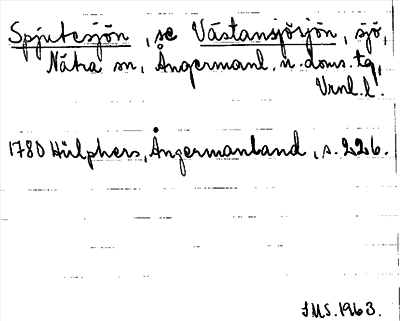 Spjutesjön, se Västansjösjön, sjö,
Nätra sn, Ångermanl. n. doms.tg,
Vrnl. l.
1780 Hülphers, Ångermanland, s. 226.
IMS. 1963.